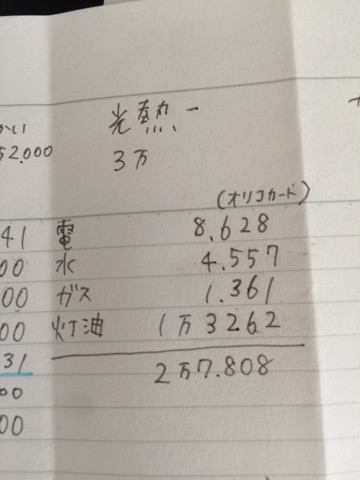 光熱一
52.000
3万
(オリコカード)
41 電 8.628
00 水 4.557
00 ガス 1.361
00 灯油 1万3262
31
2万7.808
00
00